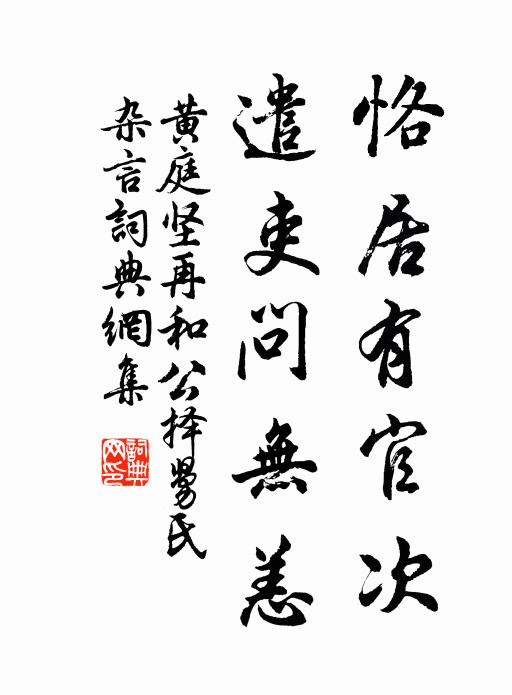 恪居有官次
遣吏問無恙
黄庭坚再和公择舅氏
杂言詞典網集
詞典网印